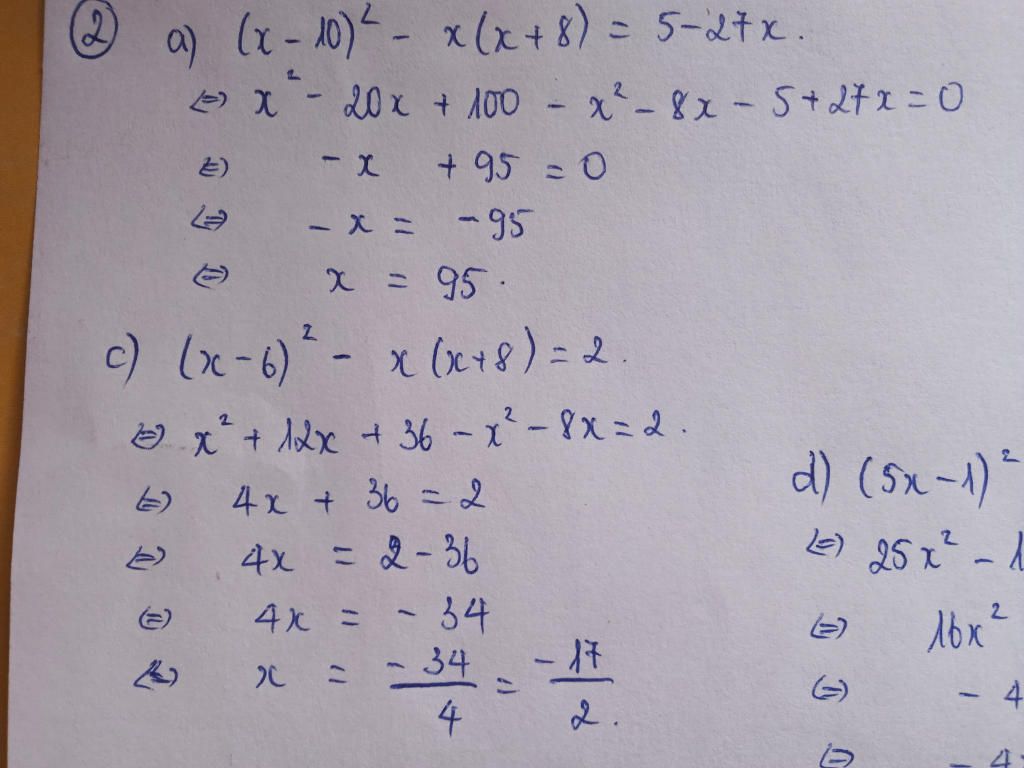 ② a) (x – 10)² – x(x + 8) = 5 – 27x.
⇔ x² – 20x + 100 – x² – 8x – 5 + 27x = 0
⇔ – x + 95 = 0
⇔ – x = – 95
⇔ x = 95.
c) (x – 6)² – x (x + 8) = 2.
⇔ x² + 12x + 36 – x² – 8x = 2.
⇔ 4x + 36 = 2
⇔ 4x = 2 – 36
⇔ 4x = – 34
⇔ x = – 34/4 = – 17/2.
d) (5x – 1)²
⇔ 25x² – 1
⇔ 16x²
⇔ – 4
⇔ – 4